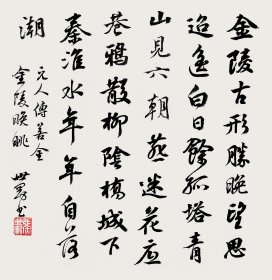 金陵古形勝晚望思
迢遥白日餘孤塔青
山見六朝燕迷花底
巷鴉散柳陰橋城下
秦淮水年年自落
潮
元人傅若金
金陵晚眺